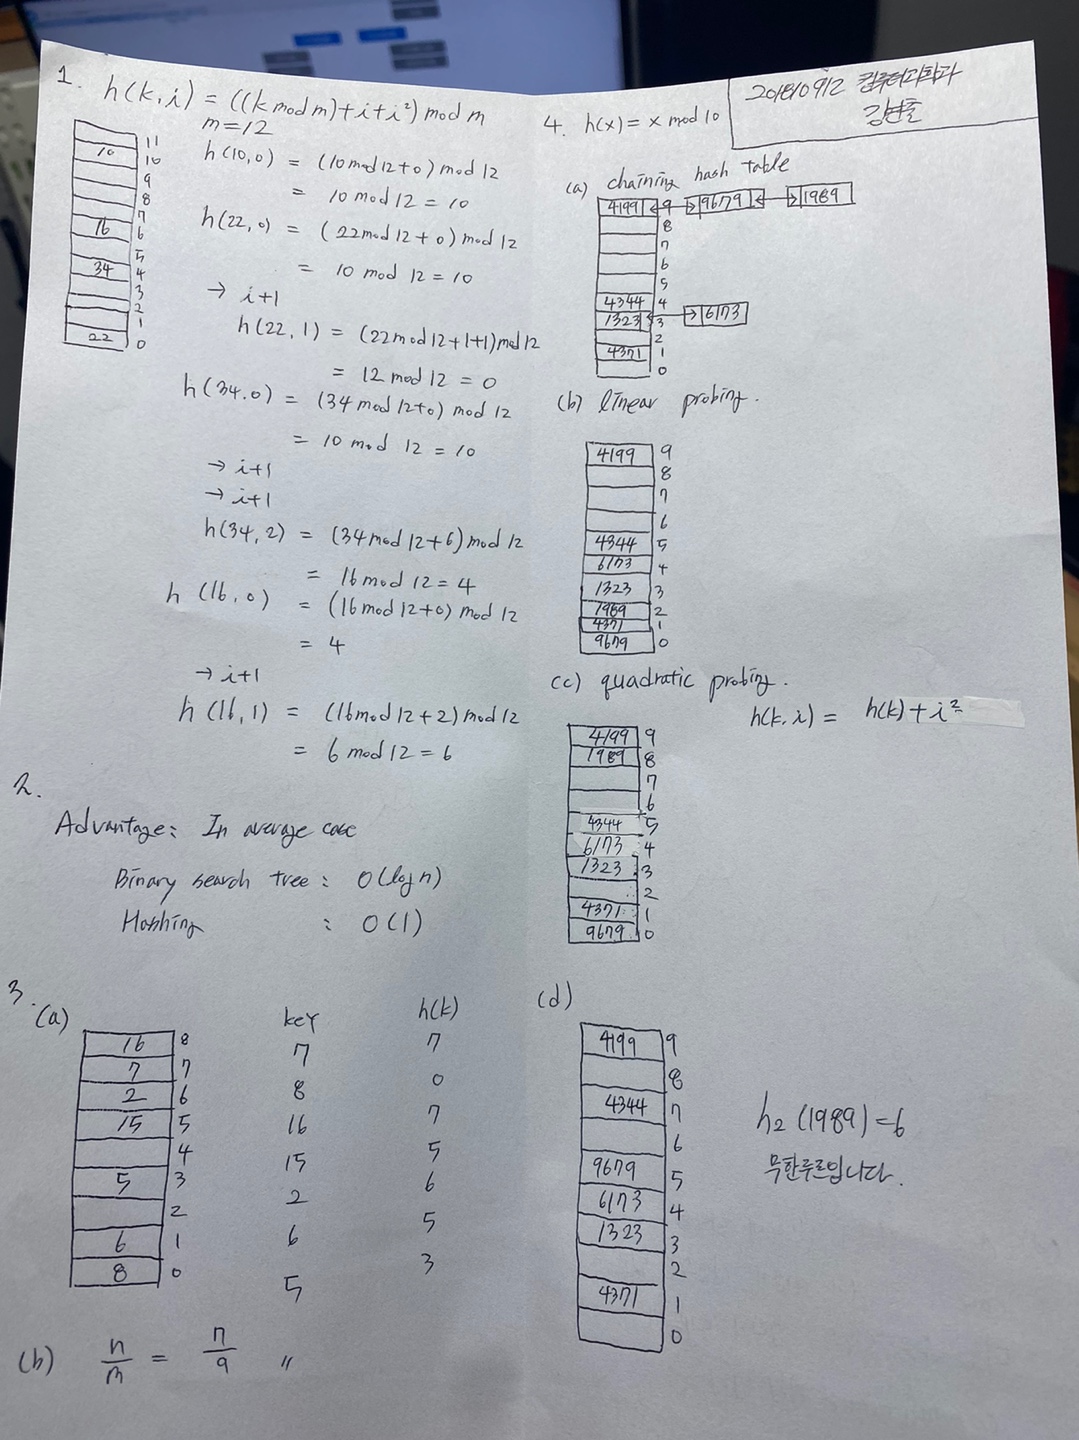 1. h(k,i) = ((k mod m)+i+i²) mod m
m=12
11
10 10
9
8
7
16 6
5
34 4
3
2
1
22 0
h(10,0) = (10 mod 12+0) mod 12
= 10 mod 12 = 10
h(22,0) = (22 mod 12 + 0) mod 12
= 10 mod 12 = 10
→ i+1
h(22,1) = (22 mod 12+1+1) mod 12
= 12 mod 12 = 0
h(34.0) = (34 mod 12+0) mod 12
= 10 mod 12 = 10
→ i+1
→ i+1
h(34,2) = (34 mod 12+6) mod 12
= 16 mod 12 = 4
h (16,0) = (16 mod 12+0) mod 12
= 4
→ i+1
h (16,1) = (16 mod 12+2) mod 12
= 6 mod 12 = 6
2.
Advantage: In average case
Binary search tree : O(log n)
Hashing : O(1)
3.
(a)
16 8
7 7
2 6
15 5
4
5 3
2
6 1
8 0
key h(k)
7 7
8 0
16 7
15 5
2 6
6 5
5 3
(b) n/m = 7/9 〃
컴퓨터과학과
4. h(x) = x mod 10
(a) chaining hash table
4199 9 9679 1989
8
7
6
5
4344 4
1323 3 6173
2
4371 1
0
(b) linear probing.
4199 9
8
7
6
4344 5
6173 4
1323 3
1989 2
4371 1
9679 0
(c) quadratic probing.
h(k,i) = h(k)+i²
4199 9
1989 8
7
6
4344 5
6173 4
1323 3
2
4371 1
9679 0
(d)
4199 9
8
4344 7
6
9679 5
6173 4
1323 3
2
4371 1
0
h₂ (1989) = 6
무한루프입니다.